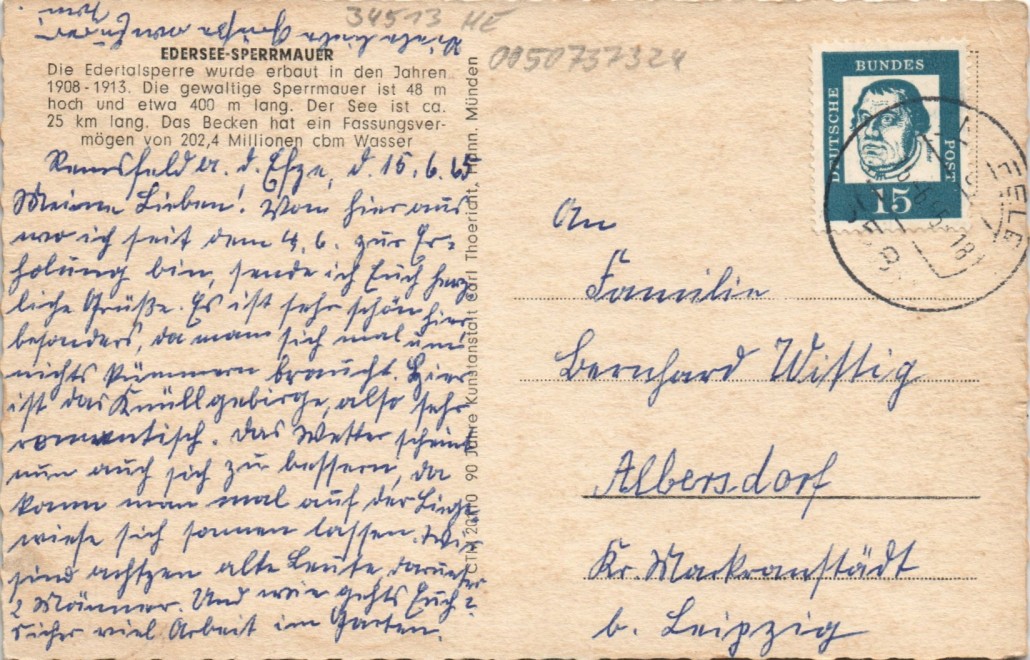 34513 HE
0050737324
EDERSEE-SPERRMAUER
Die Edertalsperre wurde erbaut in den Jahren
1908-1913. Die gewaltige Sperrmauer ist 48 m
hoch und etwa 400 m lang. Der See ist ca.
25 km lang. Das Becken hat ein Fassungsver-
mögen von 202,4 Millionen cbm Wasser
a. d. Efze, d. 15. 6. 65
Meine Lieben! Von hier aus
wo ich seit dem 4. 6. zur Er-
holung bin, sende ich Euch herz-
liche Grüße. Es ist sehr schön hier
besonders, da man sich mal um
nichts kümmern braucht. Hier
ist das Knüllgebirge, also sehr
romantisch. Das Wetter scheint
nun auch sich zu bessern, da
kann man mal auf der Liege-
wiese sich sonnen lassen. Wir
sind achtzen alte Leute, darunter
2 Männer. Und wie gehts Euch?
Sicher viel Arbeit im Garten.
Viele liebe Grüße
CTM 90 Jahre Kunstanstalt Carl Thoericht, Hann. Münden
DEUTSCHE
BUNDES
POST
15
An
Familie
Bernhard Wittig
Albersdorf
Kr. Markranstädt
b. Leipzig